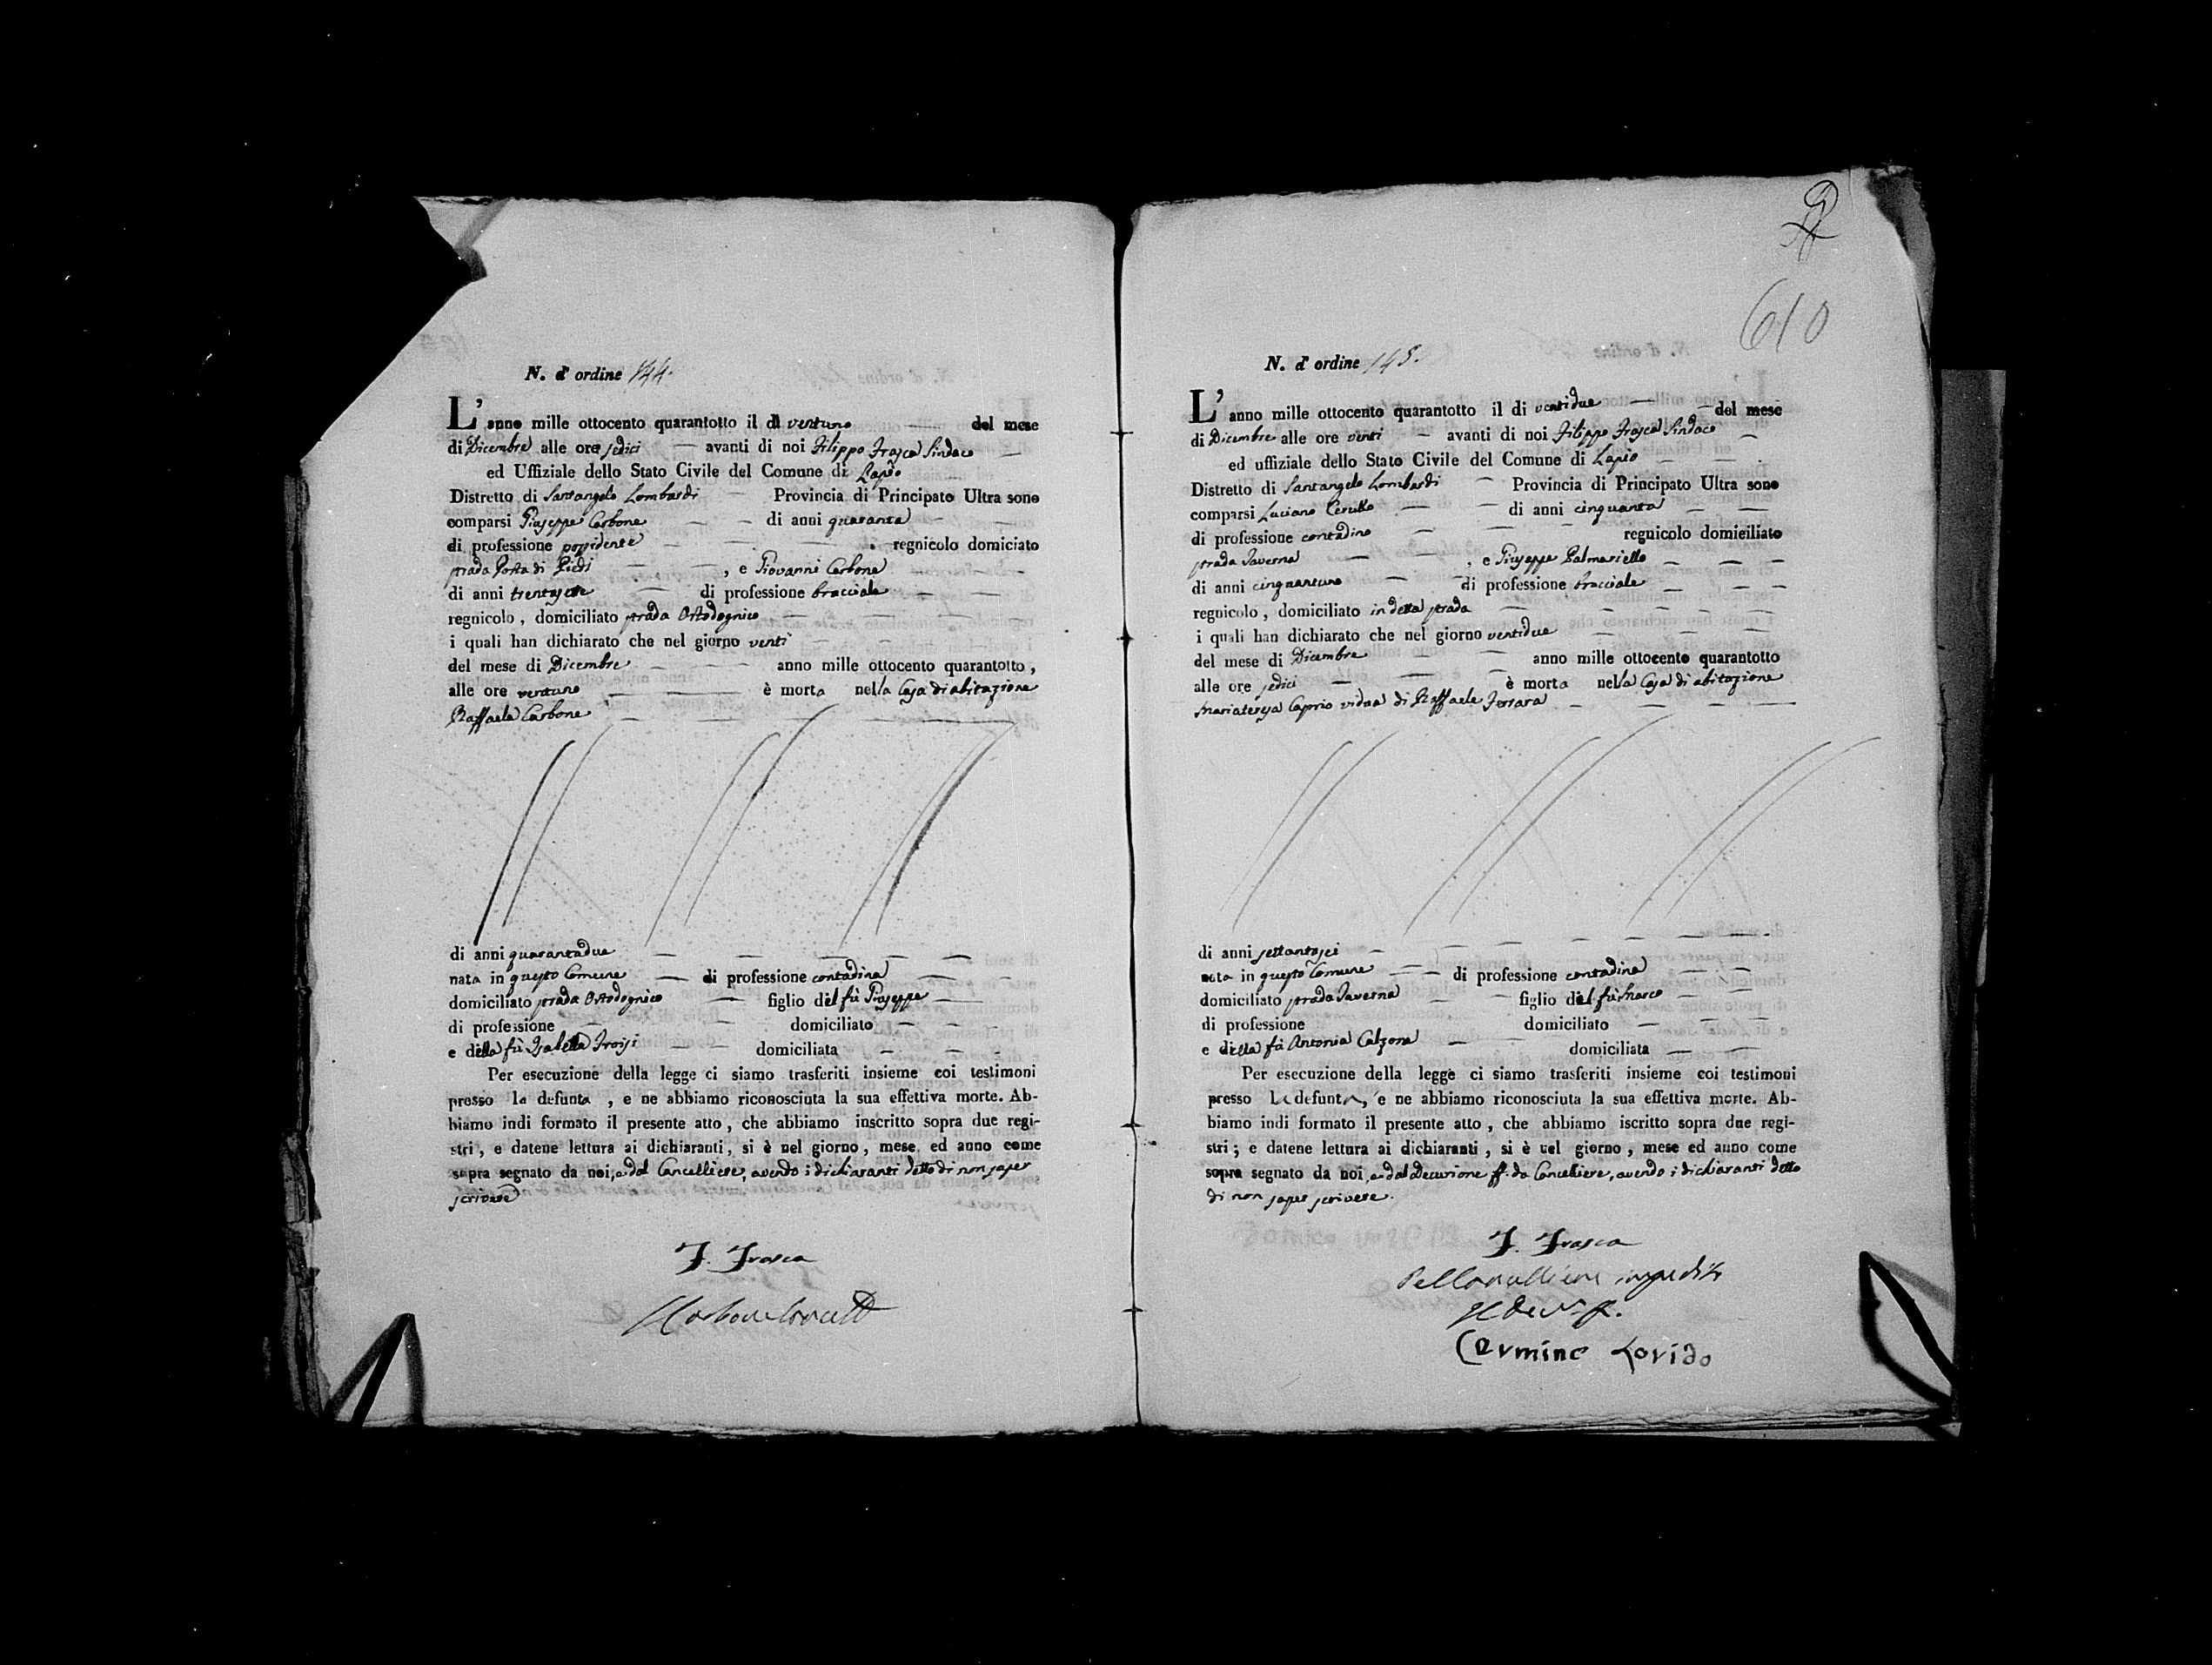 N. d' ordine 144.
L' anno mille ottocento quarantotto il dì ventuno del mese
di Dicembre alle ore sedici avanti di noi Filippo Frasca Sindaco
ed Uffiziale dello Stato Civile del Comune di Lapio
Distretto di Santangelo Lombardi Provincia di Principato Ultra sono
comparsi Giuseppe Carbone di anni quaranta
di professione possidente regnicolo domiciato
strada Porta di Piedi , e Giovanni Carbone
di anni trentasette di professione bracciale
regnicolo , domiciliato strada Ostodognico
i quali han dichiarato che nel giorno venti
del mese di Dicembre anno mille ottocento quarantotto ,
alle ore ventuno è morta nella Casa di abitazione
Raffaela Carbone
di anni quarantadue
nata in questo Comune di professione contadina
domiciliato strada Ostodognico figlio del fù Giuseppe
di professione domiciliato
e della fù Isabella Troisi domiciliata
Per esecuzione della legge ci siamo trasferiti insieme coi testimoni
presso la defunta , e ne abbiamo riconosciuta la sua effettiva morte. Ab-
biamo indi formato il presente atto , che abbiamo inscritto sopra due regi-
stri , e datene lettura ai dichiaranti, si è nel giorno, mese ed anno come
sopra segnato da noi, e dal Cancelliere, avendo i dichiaranti detto di non saper
scrivere
F. Frasca
610
N. d' ordine 145.
L' anno mille ottocento quarantotto il di ventidue del mese
di Dicembre alle ore venti avanti di noi Filippo Frasca Sindaco
ed uffiziale dello Stato Civile del Comune di Lapio
Distretto di Santangelo Lombardi Provincia di Principato Ultra sono
comparsi Luciano Cerullo di anni cinquanta
di professione contadino regnicolo domiciliato
strada Taverna , e Giuseppe Palmariello
di anni cinquantuno di professione bracciale
regnicolo , domiciliato in detta strada
i quali han dichiarato che nel giorno ventidue
del mese di Dicembre anno mille ottocento quarantotto
alle ore sedici è morta nella Casa di abitazione
Mariateresa Caprio vidua di Raffaele Ferrara
di anni settantasei
nata in questo Comune di professione contadina
domiciliato strada Taverna figlio del fù Marco
di professione domiciliato
e della fù Antonia Calzona domiciliata
Per esecuzione della legge ci siamo trasferiti insieme coi testimoni
presso la defunta, e ne abbiamo riconosciuta la sua effettiva morte. Ab-
biamo indi formato il presente atto , che abbiamo iscritto sopra due regi-
stri ; e datene lettura ai dichiaranti , si è nel giorno , mese ed anno come
sopra segnato da noi, e dal Decurione ff. da Cancelliere, avendo i dichiaranti detto
di non saper scrivere.
F. Frasca
Pel Cancelliere impedito
Carmine Lorido